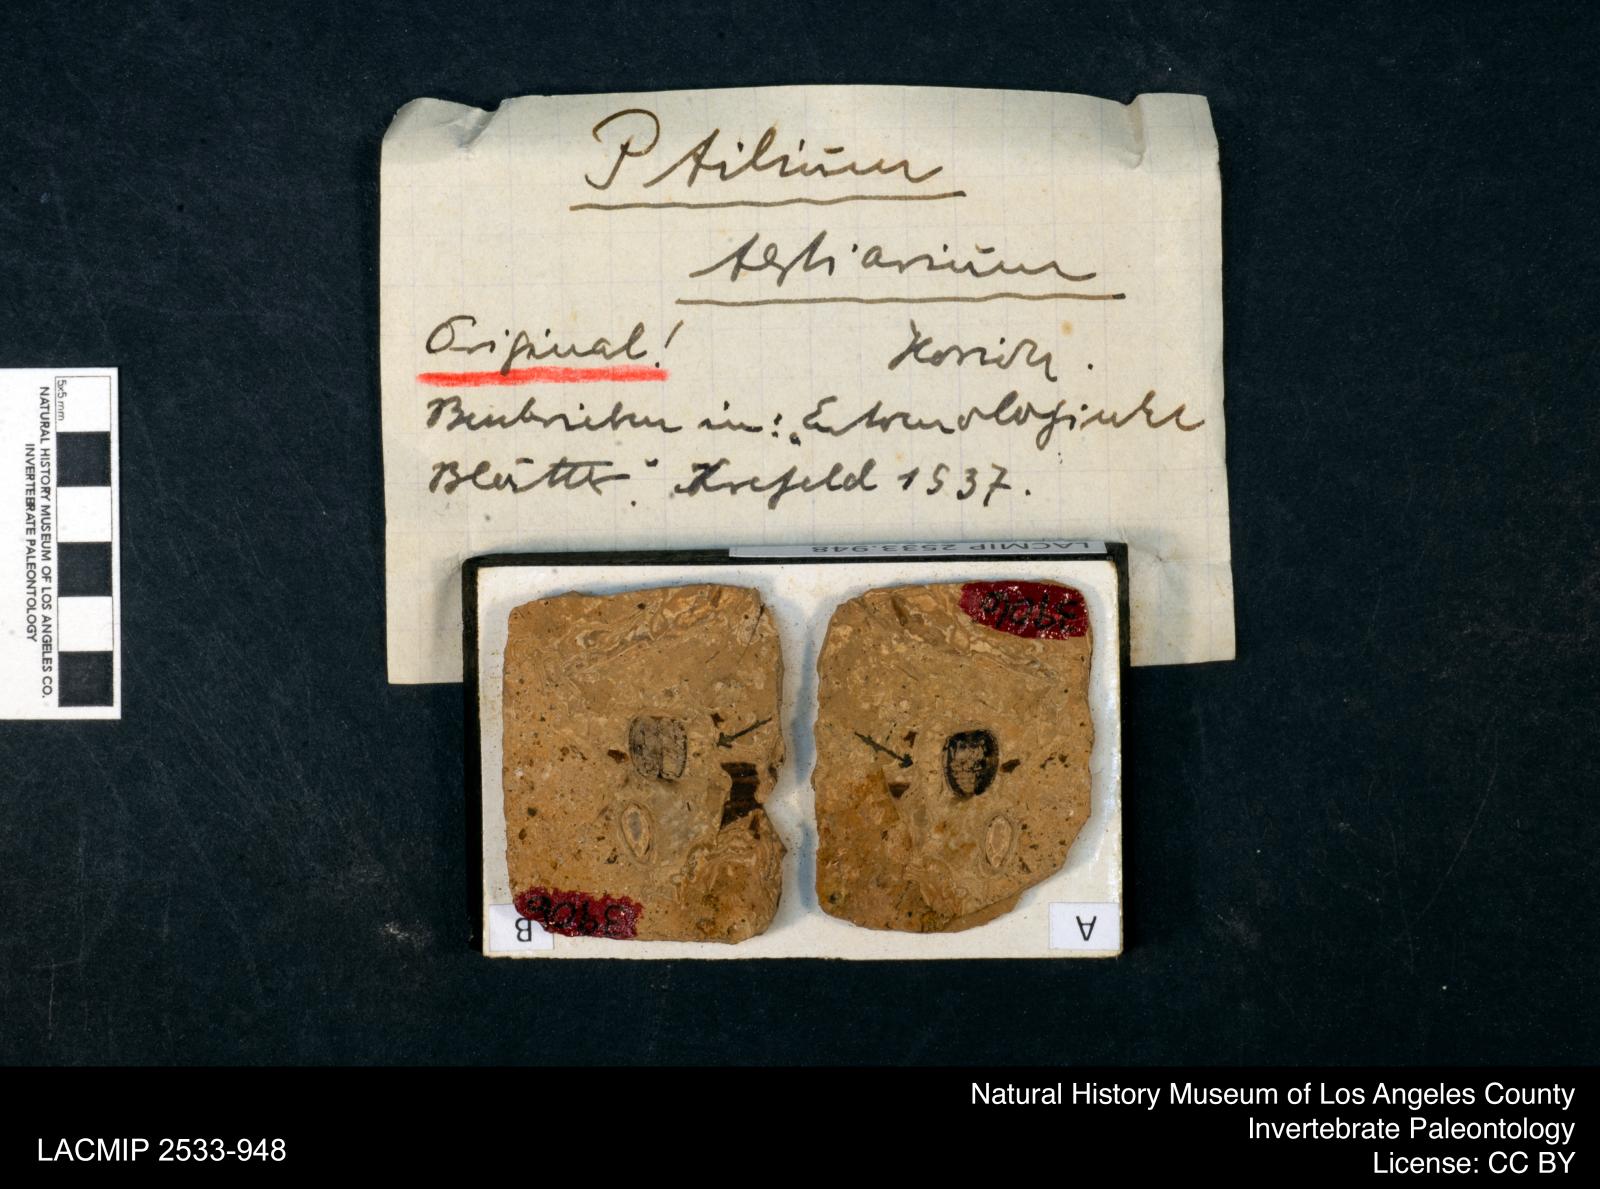 Ptilium
tertiarium
Original! Horion.
Beschrieben in: „Entomologische
Blätter". Krefeld 1937.
5x5 mm
NATURAL HISTORY MUSEUM OF LOS ANGELES CO.
INVERTEBRATE PALEONTOLOGY
LACMIP 2533.948
3906
3906
B
A
Natural History Museum of Los Angeles County
Invertebrate Paleontology
LACMIP 2533-948
License: CC BY